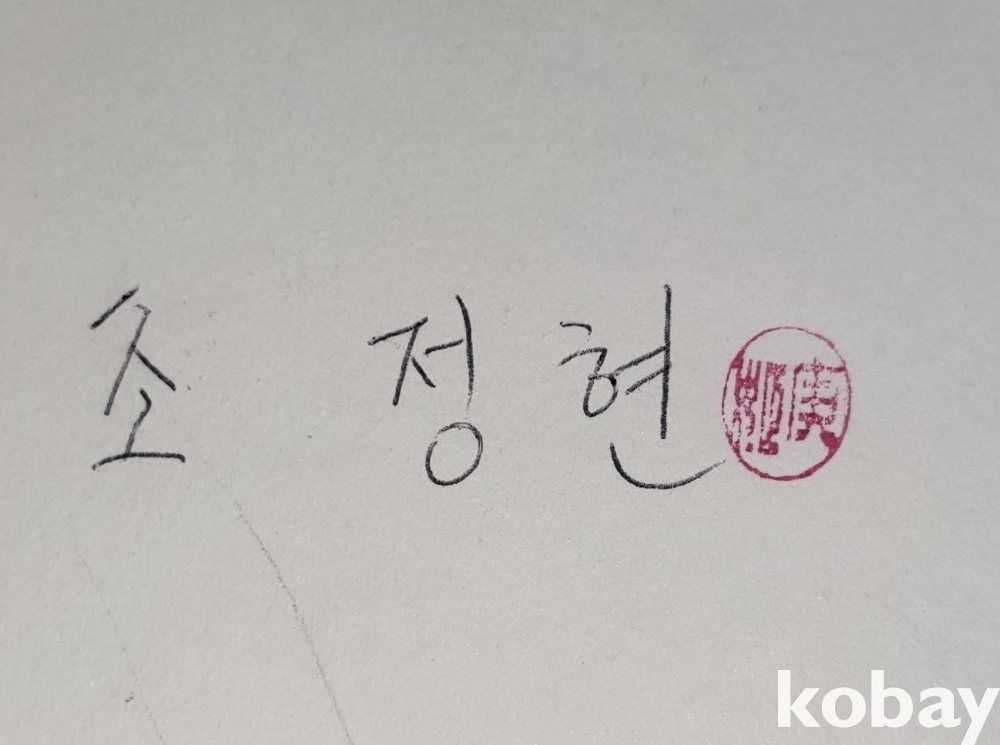 조 정 현
kobay